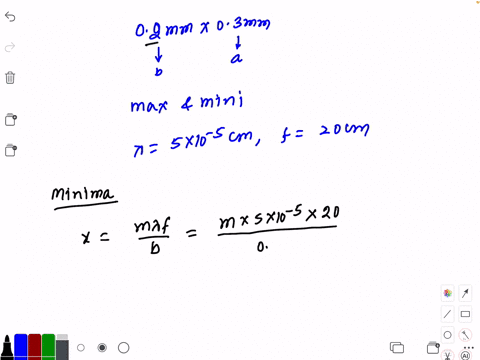 0.2mm x 0.3mm
b a
max & mini
λ = 5×10⁻⁵ cm, f = 20cm
Minima
x = mλf / b = m × 5 × 10⁻⁵ × 20 / 0.